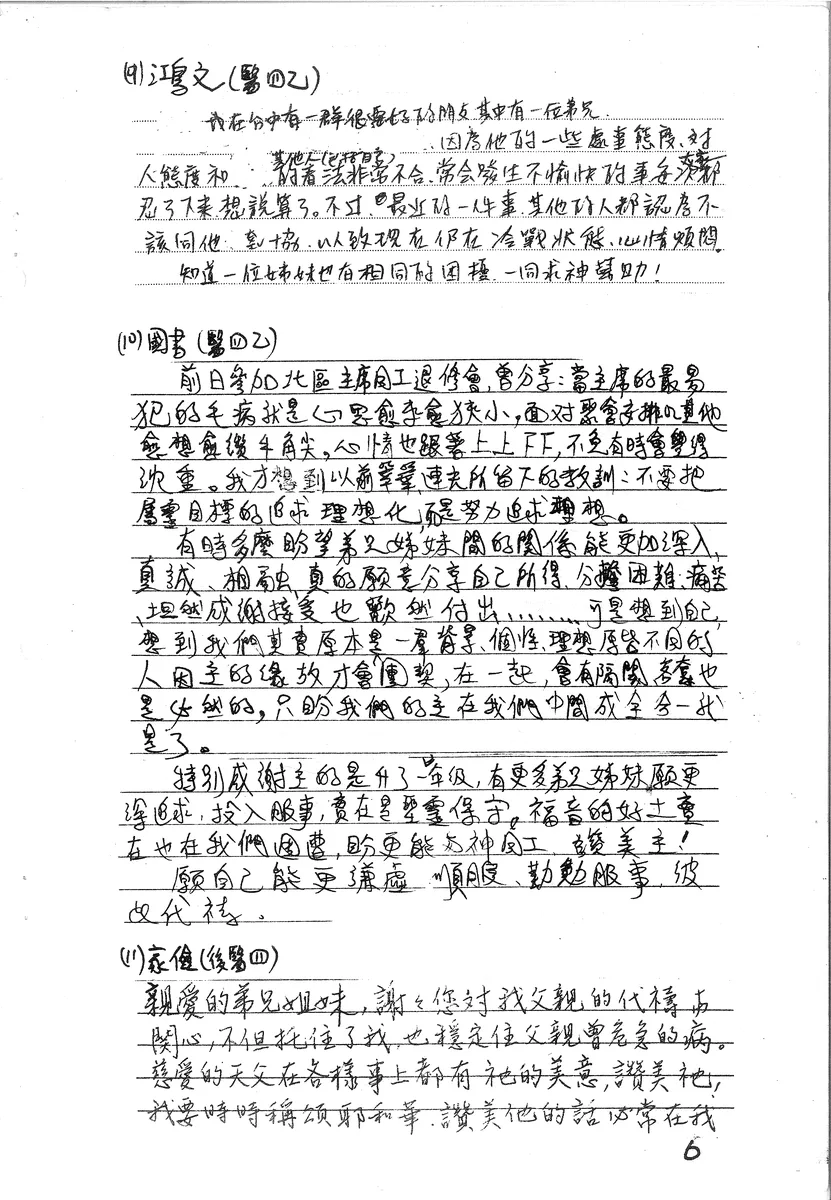 (9) 鴻文(醫四乙)
我在台中有一群很要好的朋友其中有一位弟兄.
因為他的一些處事態度、對
其他人(包括自己)
人態度和 的看法非常不合、常會發生不愉快的事每次都
忍了下來想說算了。不过,最近的一件事,其他的人都認為不
該同他 妥協、以致現在仍在冷戰狀態、心情煩悶。
知道一位姊妹也有相同的困擾,一同求神幫助!
(10) 國書(醫四乙)
前日參加北區主席同工退修會,曾分享:當主席的最易
犯的毛病就是心思愈來愈狹小,面對聚會安排以其他
愈想愈鑽牛角尖。心情也跟著上上下下,不免有時會變得
沈重。我才想到以前 連夫所留下的教訓:不要把
屬靈目標的追求理想化,而是努力追求理想。
有時多麼盼望弟兄姊妹間的關係能更加深入、
真誠、相融,真的願意分享自己所得、分擔困難、痛苦
、坦然感謝接受也歡然付出........可是想到自己,
想到我們其實原本是一羣背景、個性、理想原皆不同的
人因主的緣故才會團契,在一起,會有隔閡 也
是必然的,只盼我們的主在我們中間成全合一就
是了。
特別感謝主的是升了一年級,有更多弟兄姊妹願更
深追求,投入服事,實在是聖靈保守。福音的好土實
在也在我們週遭,盼更能与神同工 讚美主!
願自己能更謙虛 順服、勤勉服事,彼
此代禱。
(11) 家健(後醫四)
親愛的弟兄姐妹,謝々您對我父親的代禱与
關心,不但托住了我,也穩定住父親曾危急的病。
慈愛的天父在各樣事上都有祂的美意,讚美祂,
我要時時稱頌耶和華,讚美他的話必常在我
6